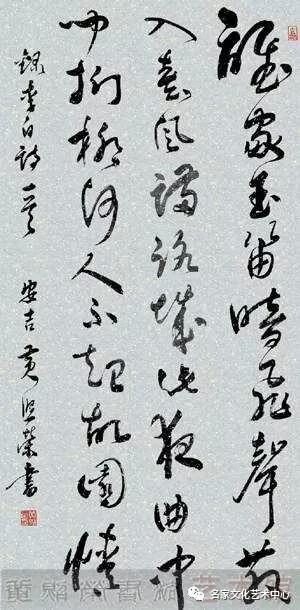 誰家玉笛暗飛聲散
入春風滿洛城此夜曲中
聞折柳何人不起故園情
錄李白詩一首 安吉黄榮書
名家文化艺术中心